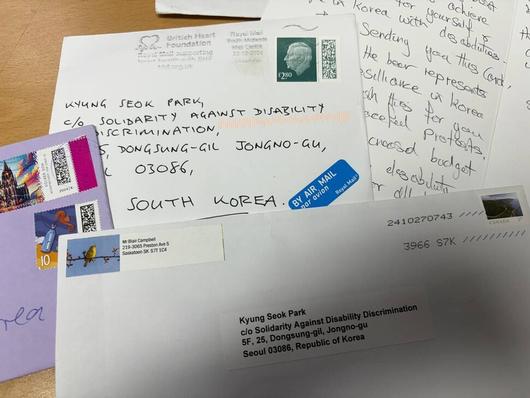 British Heart
Foundation
Royal Mail supporting
bhf.org.uk
Royal Mail
South Midlands
Mail Centre
£2.80
KYUNG SEOK PARK,
C/O SOLIDARITY AGAINST DISABILITY
DISCRIMINATION,
5, DONGSUNG-GIL JONGNO-GU,
03086,
SOUTH KOREA.
BY AIR MAIL
par avion
Royal Mail
achieve
for yourself &
in Korea with disabilities.
Sending you this card,
the bear represents
resilience in Korea
this for you
peaceful protests.
increased budget
disability
10
rea
Mr Blair Campbell
219-3065 Preston Ave S
Saskatoon SK S7T 1C4
2410270743
3966 S7K
CANADA
Kyung Seok Park
c/o Solidarity Against Disability Discrimination
5F, 25, Dongsung-gil, Jongno-gu
Seoul 03086, Republic of Korea